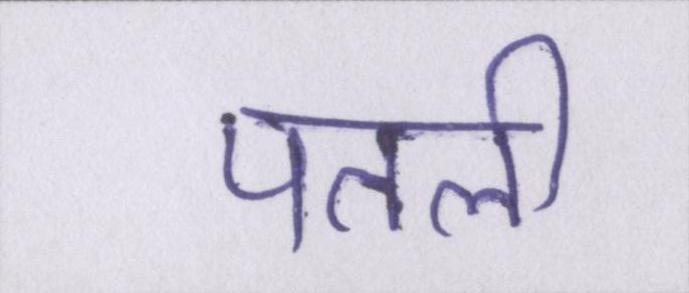 पतली